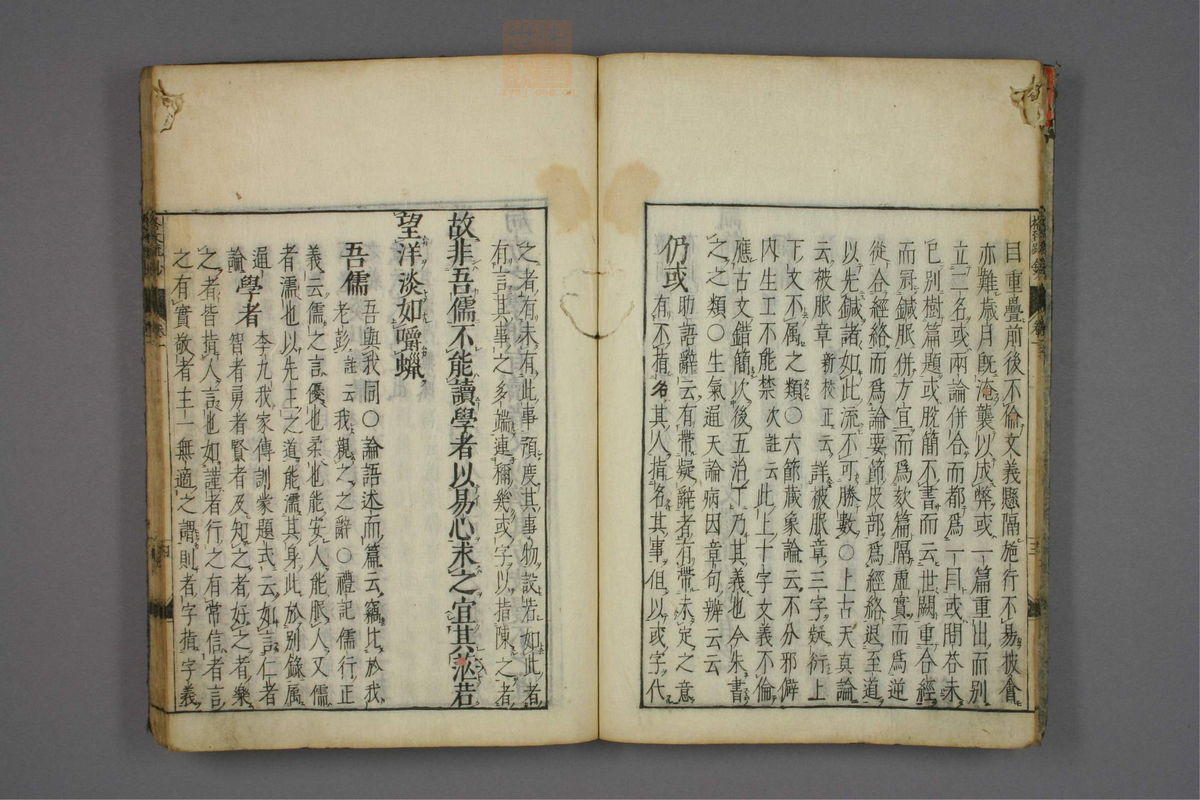 目重疊前後不倫文義懸隔施行不易披會
亦難歳月既淹襲以成弊或一篇重出而別
立二名或兩論併合而都爲一目或問荅未
已別樹篇題或脱簡不書而云世闕重合經
而冠鍼服併方宜而爲欬篇隔虚實而爲逆
從合經絡而爲論要節皮部爲經絡退至道
以先鍼諸如此流不可勝數○上古天真論
云被服章新校正云詳被服章三字疑衍上
下文不属之類○六節蔵象論云不分邪僻
内生工不能禁次註云此上十字文義不倫
應古文錯簡次後五治下乃其義也今朱書
之之類○生氣通天論病因章句辨云云
仍或助語辭云有帶疑辭者有帶未定之意
有不指名其人指名其事但以或字代
之者有未有此事預度其事物設若如此者
有言其事之多端連稱幾或字以指陳之者
故非吾儒不能讀學者以易心求之宜其茫若
望洋淡如嚼蝋
吾儒吾與我同○論語述而篇云竊比於我
老彭註云我親之之辭○禮記儒行正
義云儒之言優也柔也能安人能服人又儒
者濡也以先王之道能濡其身此於別錄属
通論學者李九我家傳訓蒙題式云如言仁者
智者勇者賢者及知之者好之者樂
之者皆指人言也如謹者行之有常信者言
之有實敬者主一無適之謂則者字指字義